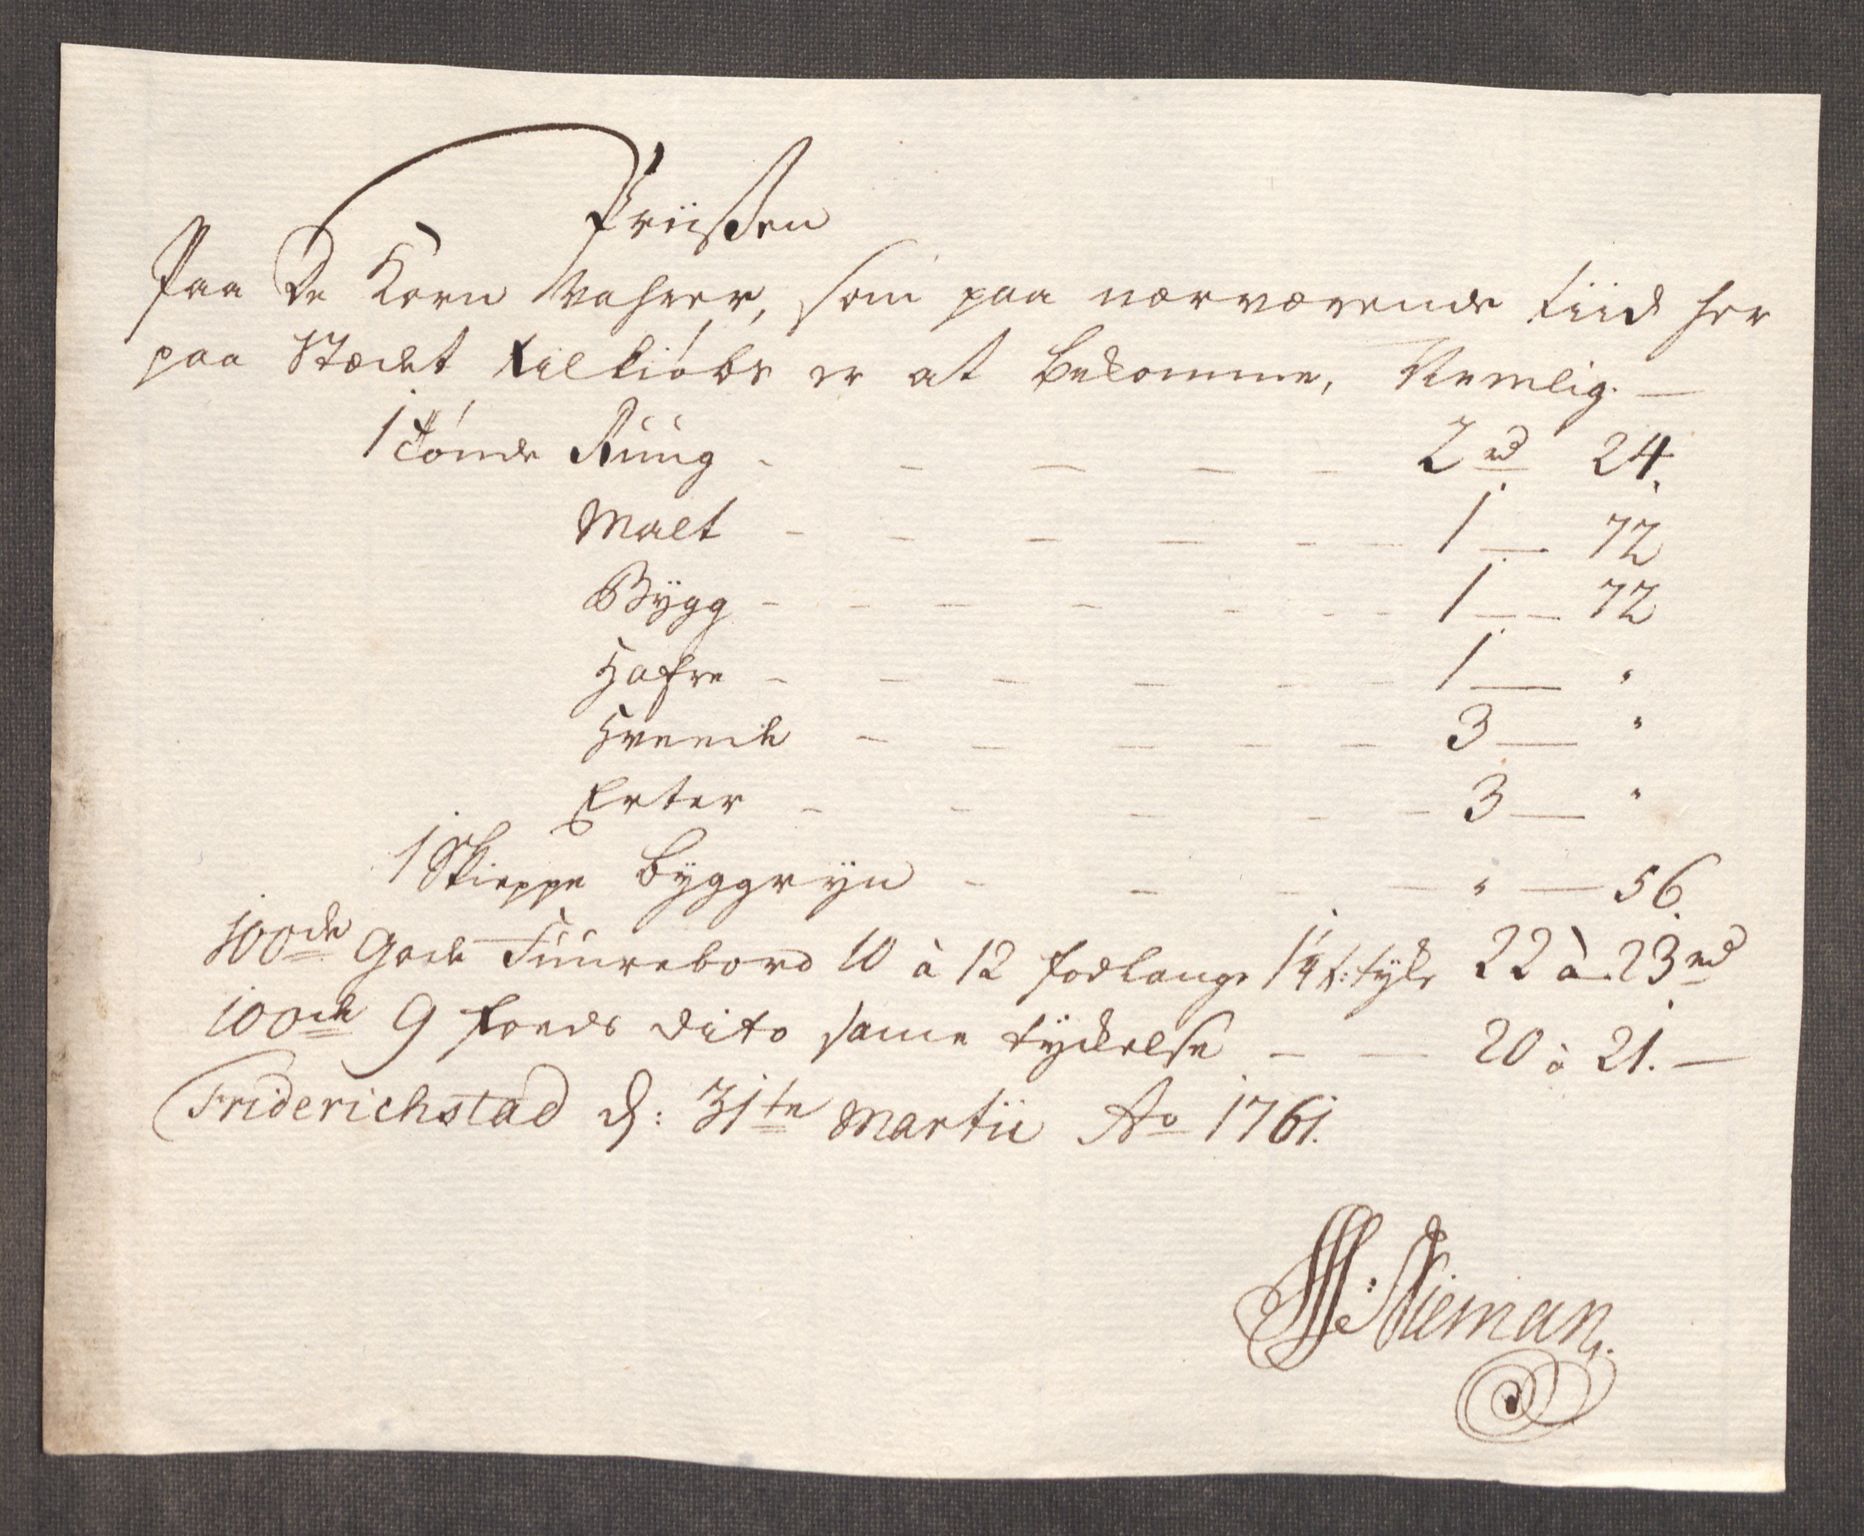 Priißen
Paa De Korn Wahrer, som paa nærværende tiid her
paa Stædet til kiøbs er at bekomme, Nemlig. —
1 Tønde Rúúg - - - - - 2 rd 24.
Malt - - - - - 1 — 72
Bÿgg - - - - - 1 — 72
Hafre - - - - - 1 — "
Hveede - - - - - 3 — "
Erter - - - - - 3 — "
1 Skieppe byggryn - - - - " — 56.
100de Gode Fúúrebord 10 à 12 fod lange 1 1/4 t: tyke 22 à 23 rd
100de 9 foeds dito same tyckelse - — 20 à 21. —
Friderichstad d: 31te Martii Ao 1761.
Nieman.